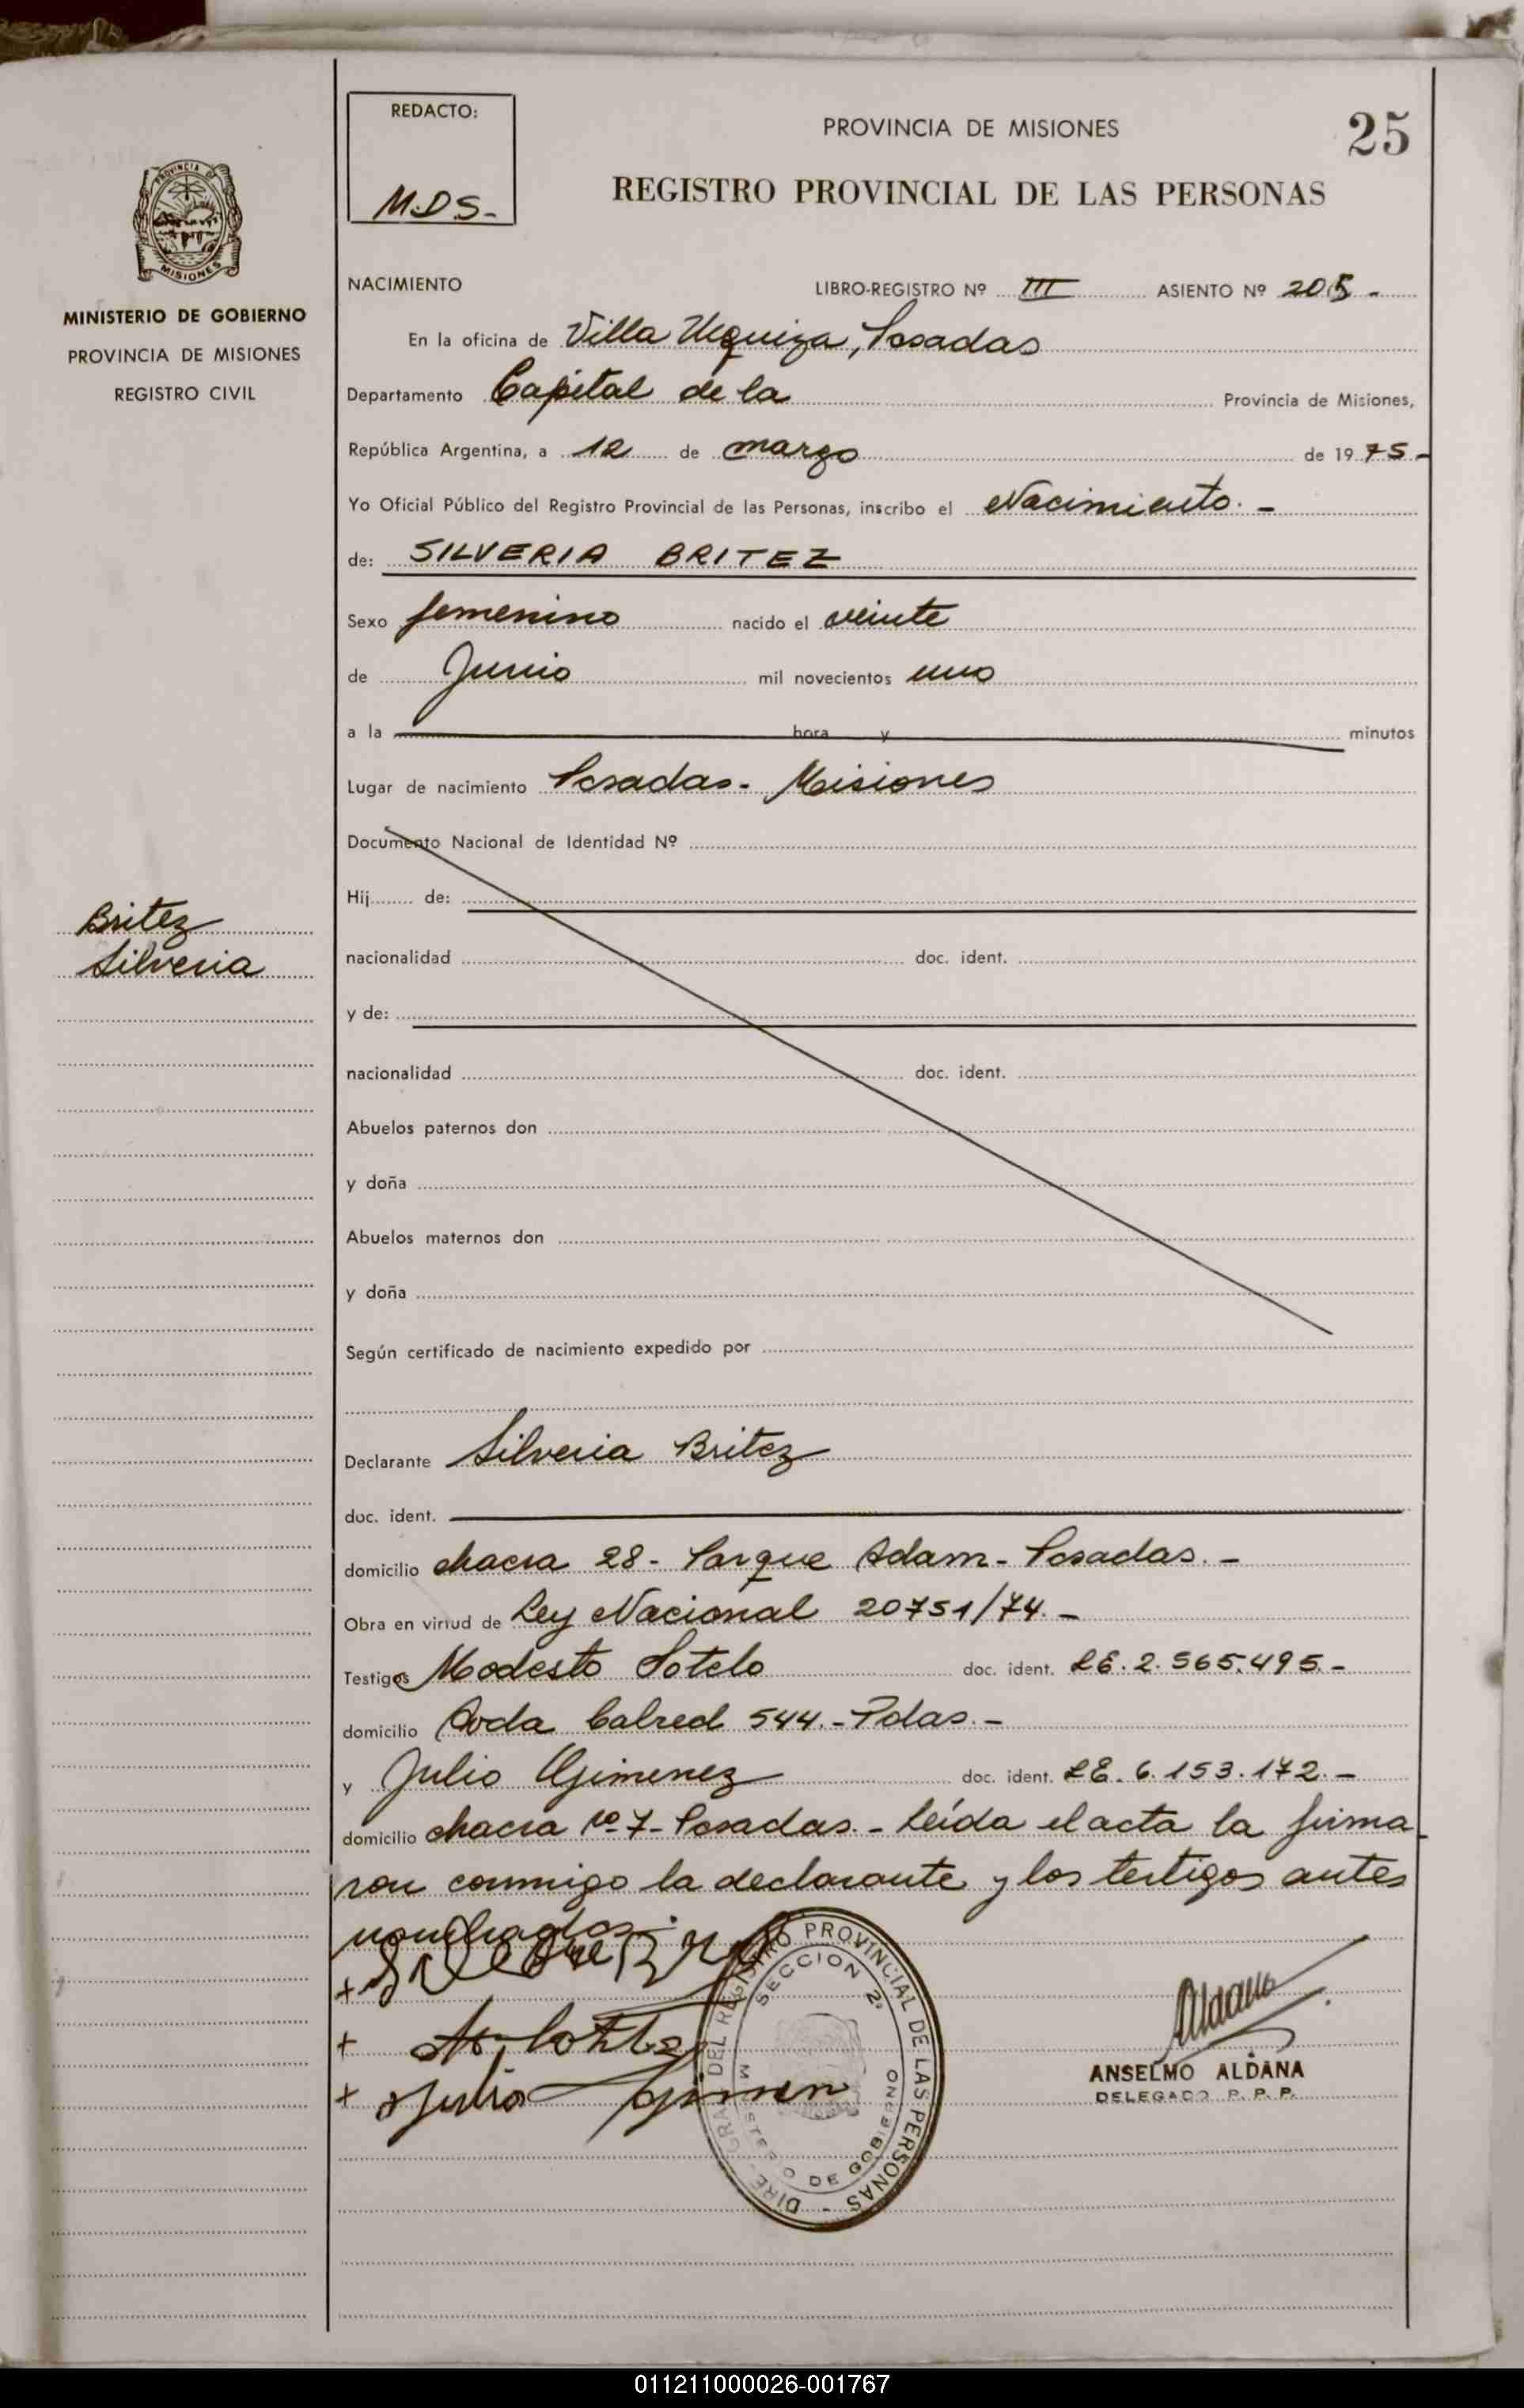 REDACTO:
M.D.S.-
PROVINCIA DE MISIONES
25
REGISTRO PROVINCIAL DE LAS PERSONAS
PROVINCIA DE MISIONES
MINISTERIO DE GOBIERNO
PROVINCIA DE MISIONES
REGISTRO CIVIL
NACIMIENTO LIBRO-REGISTRO Nº III ASIENTO Nº 205-
En la oficina de Villa Urquiza, Posadas
Departamento Capital de la Provincia de Misiones,
República Argentina, a 12 de marzo de 1975-
Yo Oficial Público del Registro Provincial de las Personas, inscribo el Nacimiento.-
de: SILVERIA BRITEZ
Sexo femenino nacido el veinte
de Junio mil novecientos uno
a la hora y minutos
Lugar de nacimiento Posadas- Misiones
Documento Nacional de Identidad Nº
Hij de:
Britez
Silveria
nacionalidad doc. ident.
y de:
nacionalidad doc. ident.
Abuelos paternos don
y doña
Abuelos maternos don
y doña
Según certificado de nacimiento expedido por
Declarante Silveria Britez
doc. ident.
domicilio chacra 28- Parque Adam- Posadas.-
Obra en virtud de Ley Nacional 20751/74.-
Testigos Modesto Sotelo doc. ident. LE.2.565.495.-
domicilio Avda Cabred 544.-Pdas.-
y Julio Gimenez doc. ident. LE.6.153.172.-
domicilio chacra Nº 7- Posadas.- Leída el acta la firma
ron conmigo la declarante y los testigos antes
nombrados.
+
+
+ Julio Gimen
DIRE GRAL DEL REGISTRO PROVINCIAL DE LAS PERSONAS -
SECCION 2ª
MINISTERIO DE GOBIERNO
Aldana
ANSELMO ALDANA
DELEGADO R. P. P.
011211000026-001767